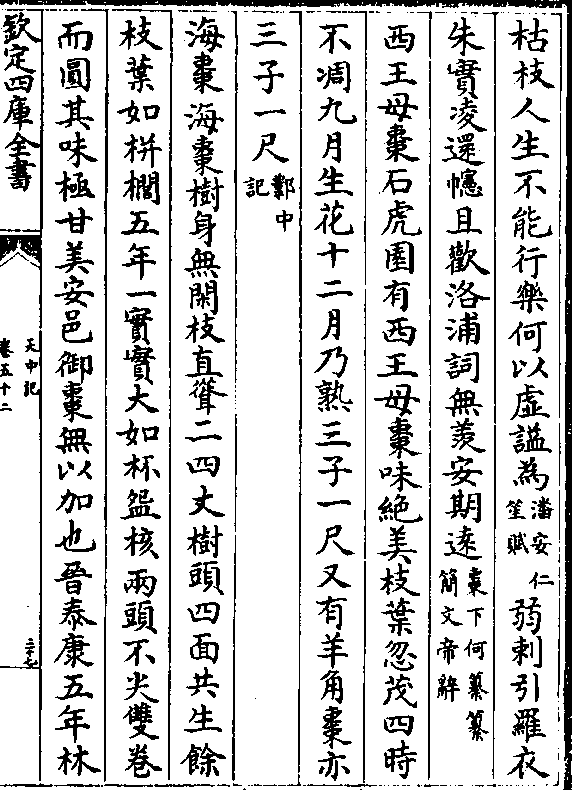 枯枝人生不能行樂何以虛謚為潘安仁笙賦弱刺引羅衣
朱實凌還幰且歡洛浦詞無羨安期遠棗下何纂纂簡文帝辭
西王母棗石虎園有西王母棗味絶美枝葉忽茂四時
不凋九月生花十二月乃熟三子一尺又有羊角棗亦
三子一尺鄴中記
海棗海棗樹身無閑枝直聳二四丈樹頭四面共生餘
枝葉如栟櫚五年一實實大如杯盌核兩頭不尖雙卷
而圓其味極甘美安邑御棗無以加也晉泰康五年林
欽定四庫全書
天中記
卷五十二
三十七